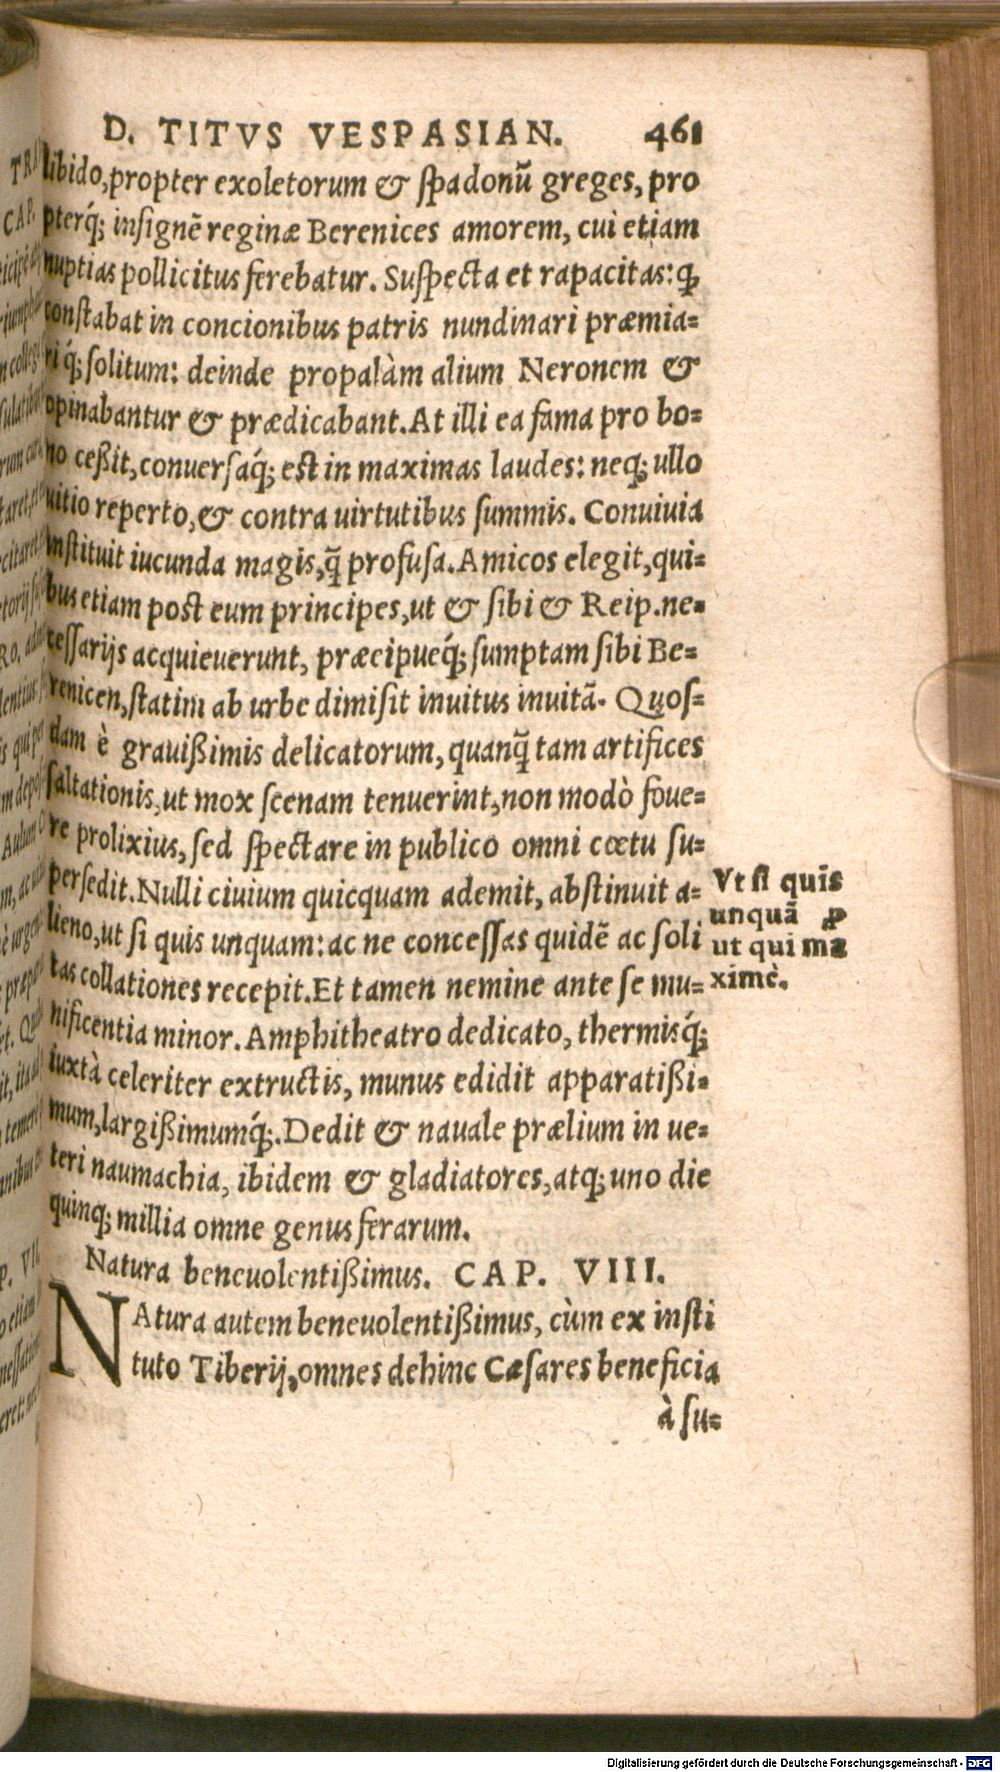 D. TITVS VESPASIAN. 461
libido, propter exoletorum & ſpadonũ greges, pro
pterq́; inſignẽ reginæ Berenices amorem, cui etiam
nuptias pollicitus ferebatur. Suſpecta et rapacitas: ꝙ
conſtabat in concionibus patris nundinari præmia-
ri q́; ſolitum: deinde propalàm alium Neronem &
opinabantur & prædicabant. At illi ea fama pro bo-
no ceßit, conuerſaq́; eſt in maximas laudes: neq; ullo
uitio reperto, & contra uirtutibus ſummis. Conuiuia
inſtituit iucunda magis, q̃ profuſa. Amicos elegit, qui-
bus etiam poſt eum principes, ut & ſibi & Reip. ne-
ceſſarijs acquieuerunt, præcipueq́; ſumptam ſibi Be-
renicen, ſtatim ab urbe dimiſit inuitus inuitã. Quoſ-
dam è grauißimis delicatorum, quanq̃ tam artifices
ſaltationis, ut mox ſcenam tenuerint, non modò foue-
re prolixius, ſed ſpectare in publico omni cœtu ſu-
perſedit. Nulli ciuium quicquam ademit, abſtinuit a-
lieno, ut ſi quis unquam: ac ne conceſſas quidẽ ac ſoli
tas collationes recepit. Et tamen nemine ante ſe mu-
nificentia minor. Amphitheatro dedicato, thermisq́;
iuxtà celeriter extructis, munus edidit apparatißi-
mum, largißimumq́;. Dedit & nauale prælium in ue-
teri naumachia, ibidem & gladiatores, atq; uno die
quinq; millia omne genus ferarum.
Vt ſi quis
unquã ꝓ
ut qui ma
ximè.
Natura beneuolentißimus. CAP. VIII.
NAtura autem beneuolentißimus, cùm ex inſti
tuto Tiberij, omnes dehinc Cæſares beneficia
à ſu-
Digitalisierung gefördert durch die Deutsche Forschungsgemeinschaft - DFG